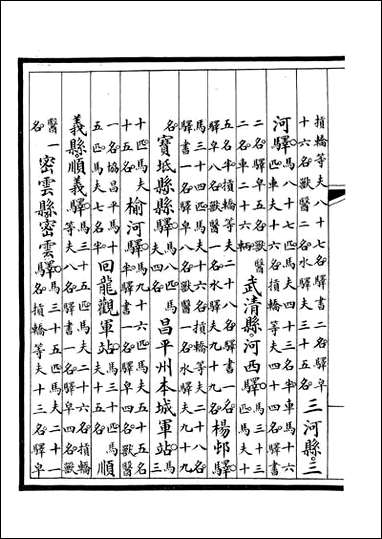 摃轎等夫八十七名驛書二名驛皂
十六名獸醫二名水驛夫三十五名
三河縣三
河驛
馬八十七匹馬夫四十三名半車馬十六
匹車夫十六名摃轎等夫名驛書
二名驛皂五名獸醫
二名車二十六輛
武清縣河西驛
馬三十三
匹馬夫十
五名半摃轎等夫二十八名驛書一名
驛皂八名獸醫一名水驛夫九十九名
楊邨驛
馬三十四匹馬夫十六名摃轎等夫二十八名
驛書一名驛皂四名獸醫一名水驛夫九十九
名
寶坻縣縣驛
馬八匹馬
夫四名
昌平州本城軍站
馬三
十匹馬夫
十五名
榆河驛
馬九十六匹馬夫五十五名
半驛書一名驛皂四名獸醫
一名協昌平馬十
五匹馬夫七名半
回龍觀軍站
馬三十匹馬
夫十五名
順
義縣順義驛
馬三十五匹馬夫二十六名摃轎
等夫八名驛書一名驛皂四名獸
醫一
名
密雲縣密雲驛
馬三十五匹馬夫二十一
名摃轎等夫十三名驛皂